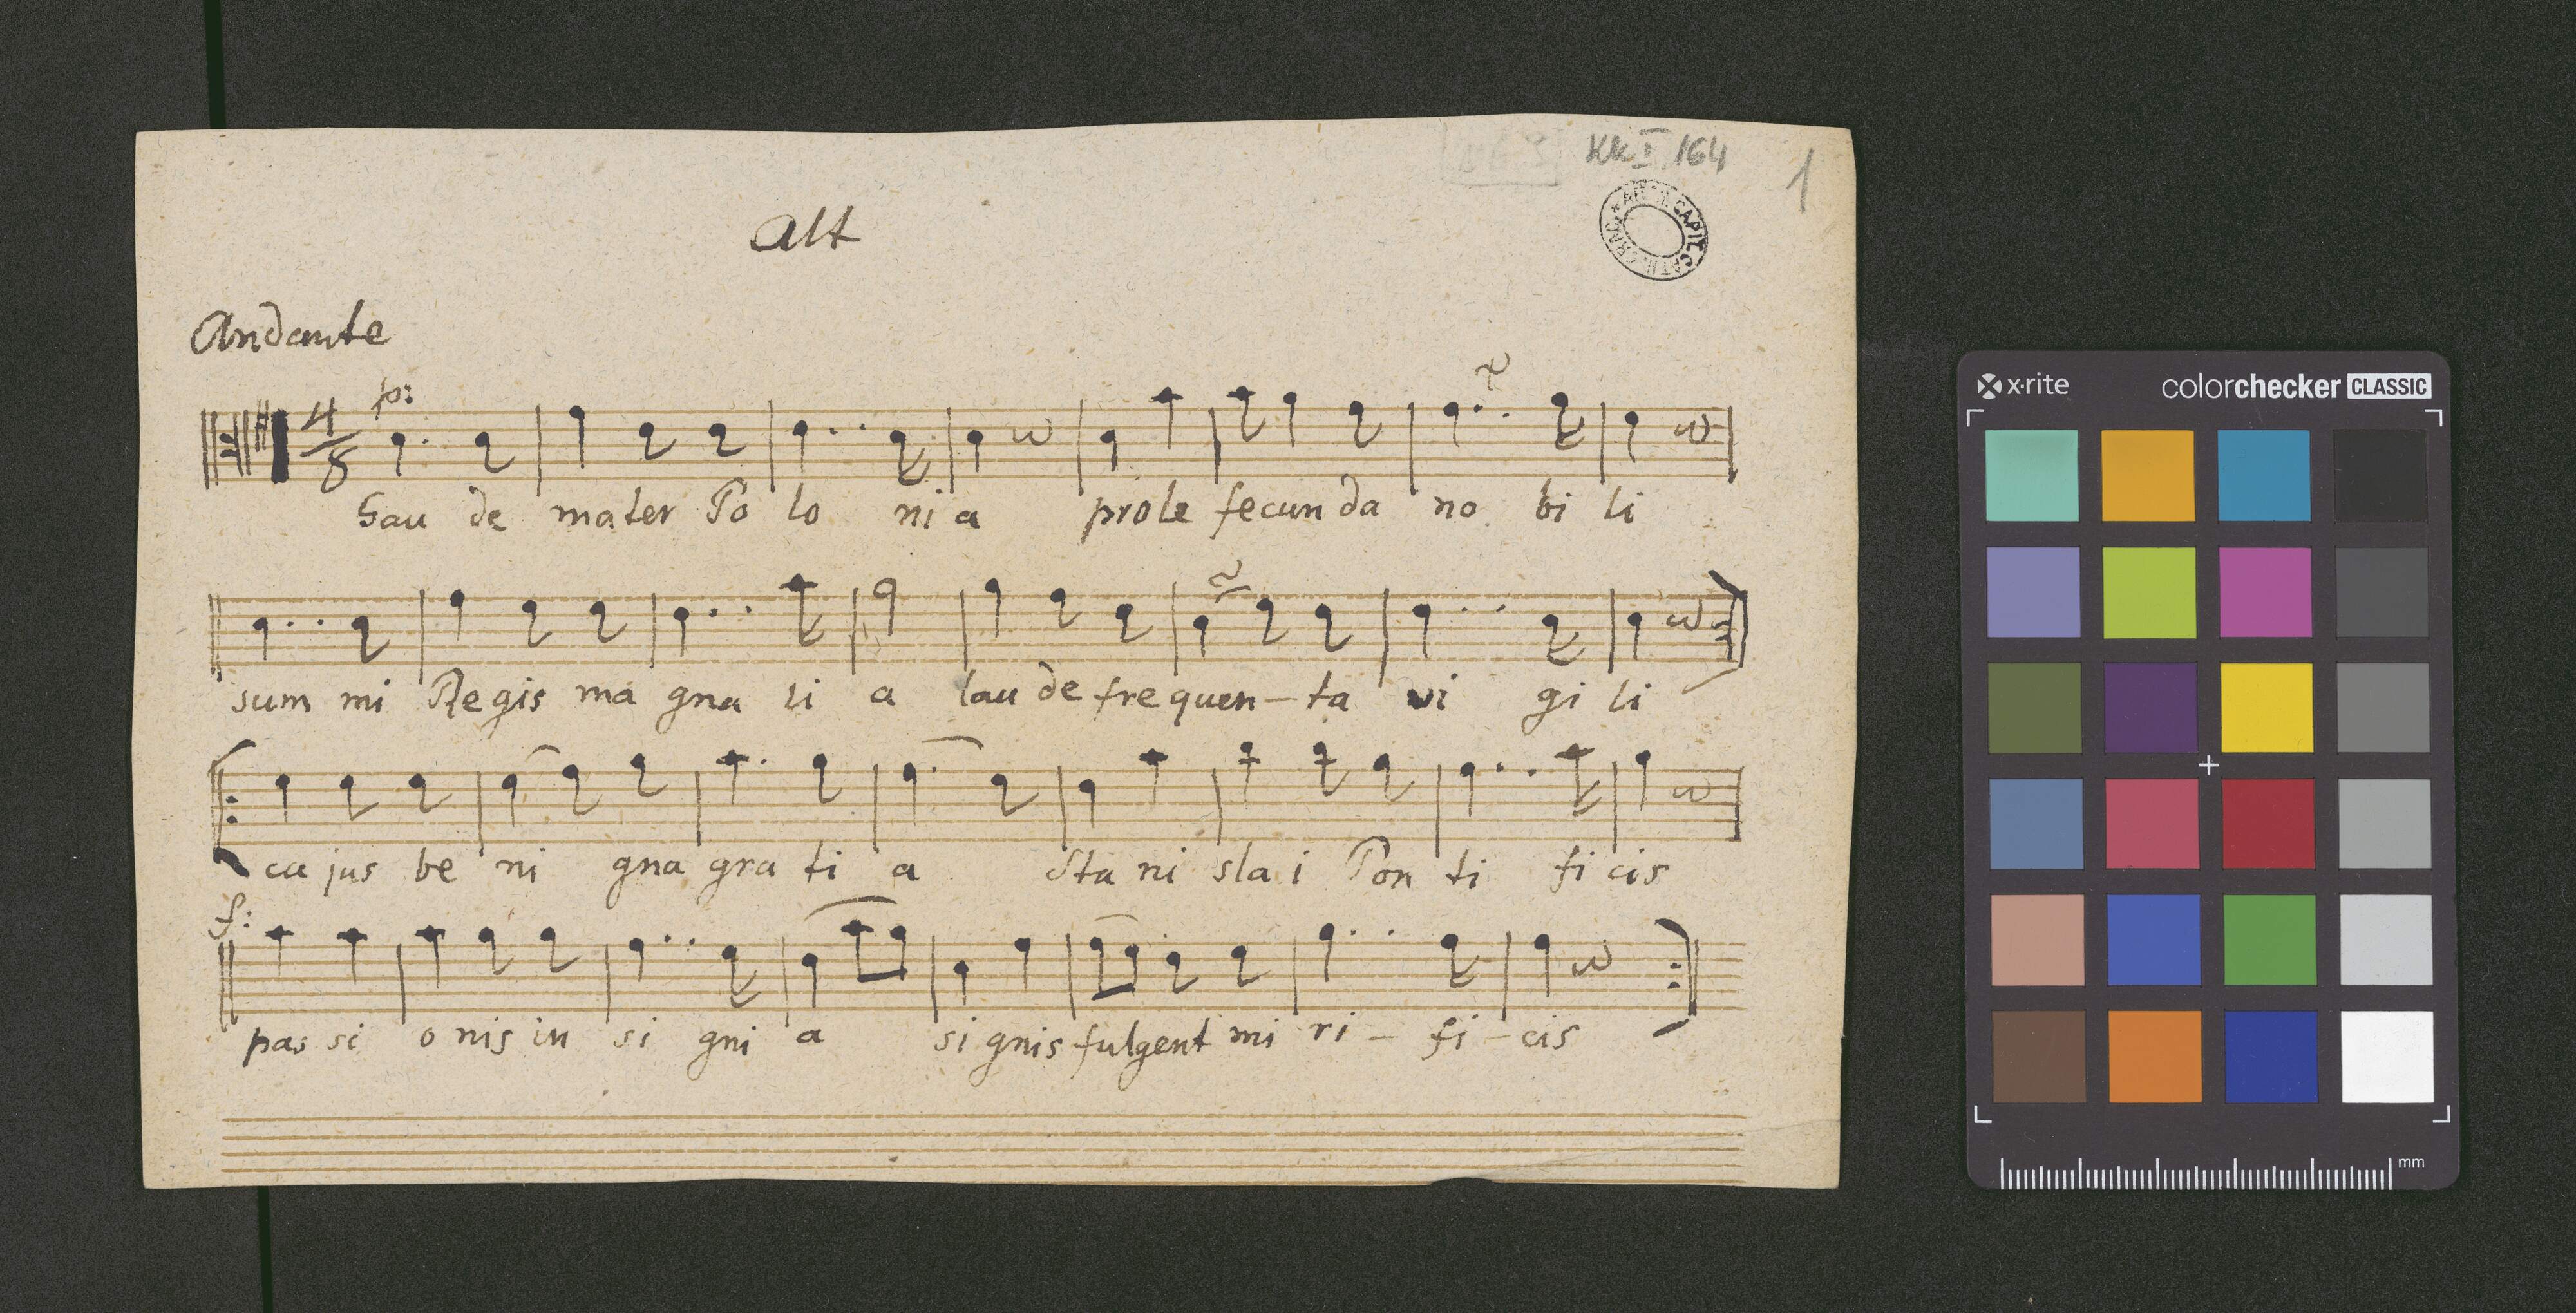 KK I 164
1
ARCH. CAPIT. CATH. CRAC.
Alt
Andante
4/8 p:
Gau de mater Po lo ni a prole fecun da no bi li
sum mi Regis ma gna li a lau de fre quen-ta vi gi li
cu jus be ni gna gra ti a Sta ni sla i Pon ti fi cis
f:
pas si o nis in si gni a si gnis fulgent mi ri - fi - cis
x·rite colorchecker CLASSIC
mm